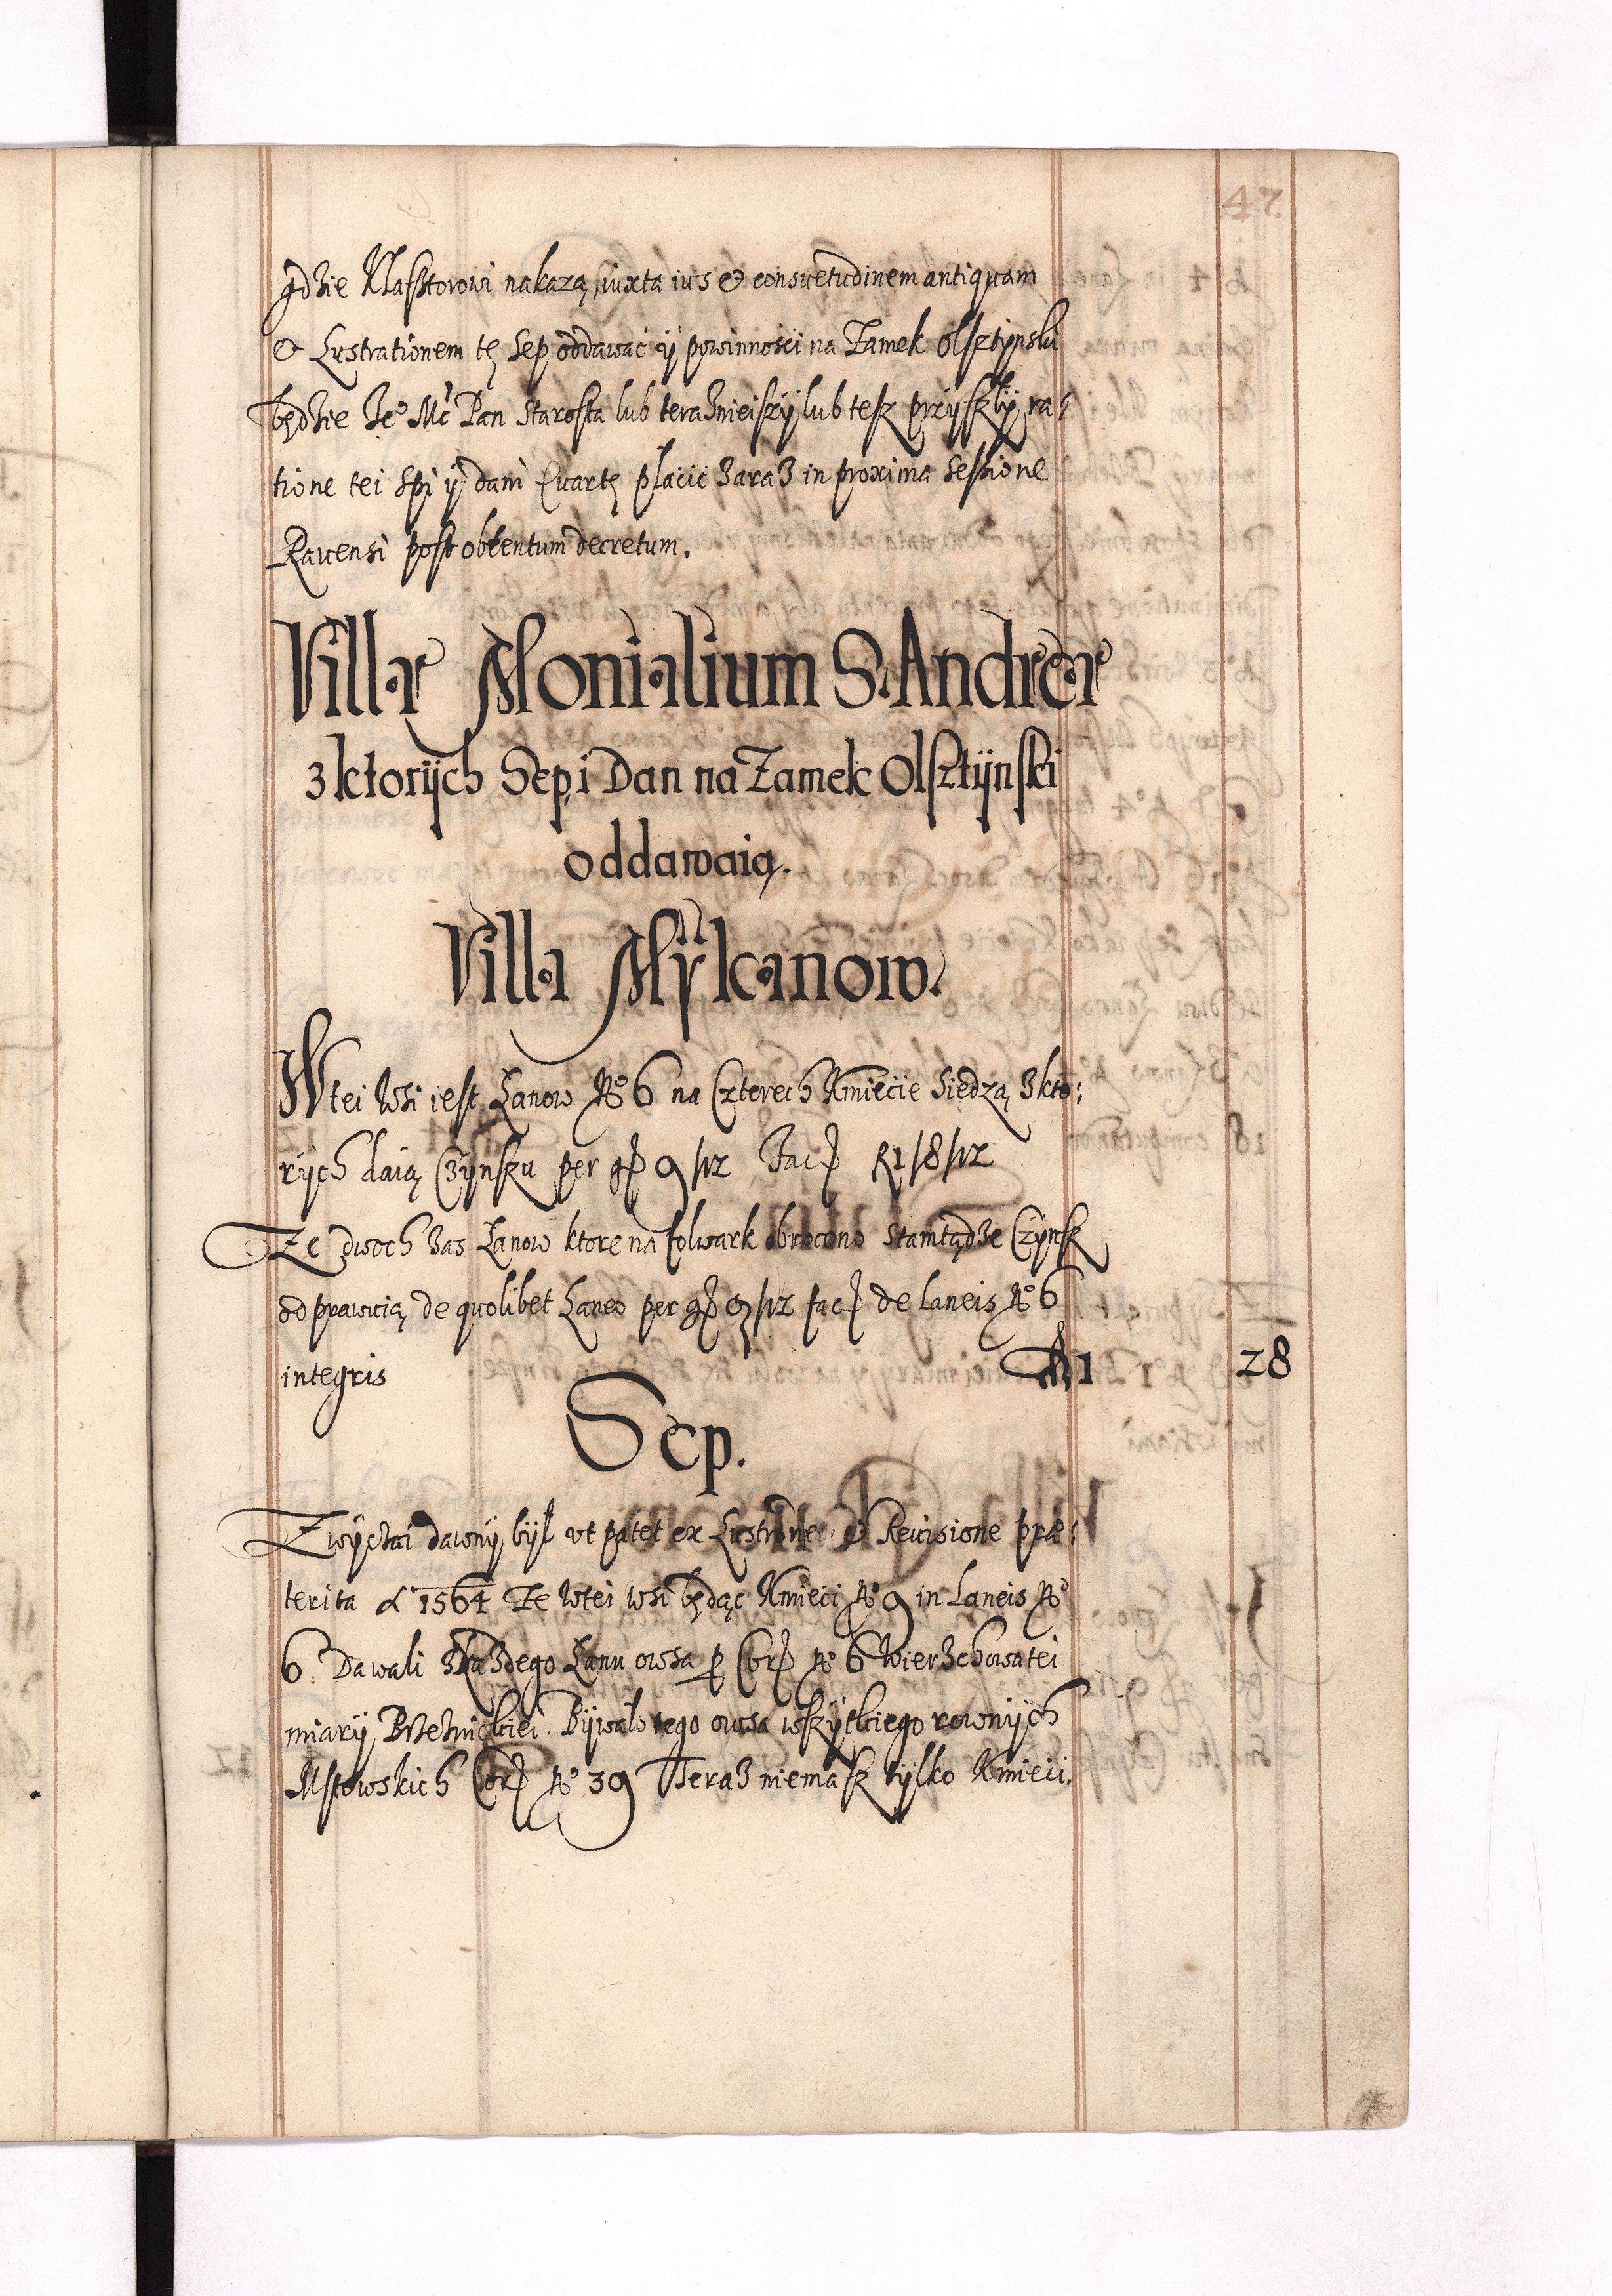 47.
gdzie Klasztorowi nakazą, iuxta ius & consuetudinem antiquam
& Lustrationem tę Sep oddawać ÿ powinnosci na Zamek Olsztÿnski
będzie Ie° Mć Pan Starosta lub teraznieiszÿ lub tesz przÿszlÿ ra:
tione tei Spi ÿ dani Quartę płacić zaraz in proxima Sessione
Ravensi post obtentum decretum.
Villæ Monialium S. Andreæ
z ktorÿch Sep i Dan na Zamek Olsztÿnski
oddawaią.
Villa Mÿkanow.
W tei Wsi iest Łanow N° 6 na Czterech Kmiecie Siedzą z kto:
rÿch daią Czÿnszu per g 9/12 Fac 1/8/12
Ze dwoch zas Łanow ktore na folwark obrocono stamtądze Czÿnsz
odprawuią, de quolibet Laneo per g 9/12 fac de Laneis N° 6
integris 1 28
Sep.
Zwÿczai dawnÿ bÿl ut patet ex Lustrõne & Revisione præ:
terita 1564 Ze w tei wsi będąc Kmieci N° 9 in Laneis N°
6. Dawali z kazdego Łanu owsa p Cor N° 6 Wierzchowatei
miarÿ Brzeznickiei. Bÿwało tego owsa wszÿtkiego rownÿch
Mstowskich Cor N° 39 Teraz niemasz tÿlko Kmieci.